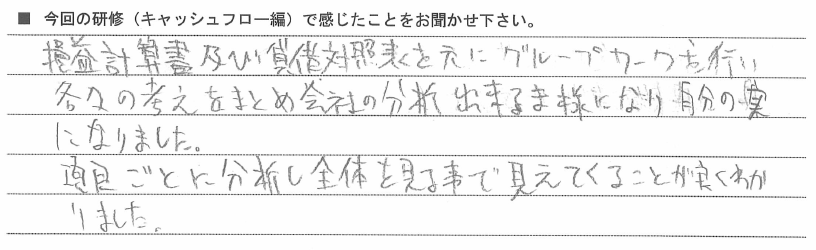 ■ 今回の研修（キャッシュフロー編）で感じたことをお聞かせ下さい。
損益計算書及び貸借対照表を元にグループワークを行い
各々の考えをまとめ会社の分析出来る様になり自分の実
になりました。
項目ごとに分析し全体を見る事で見えてくることが良くわか
りました。